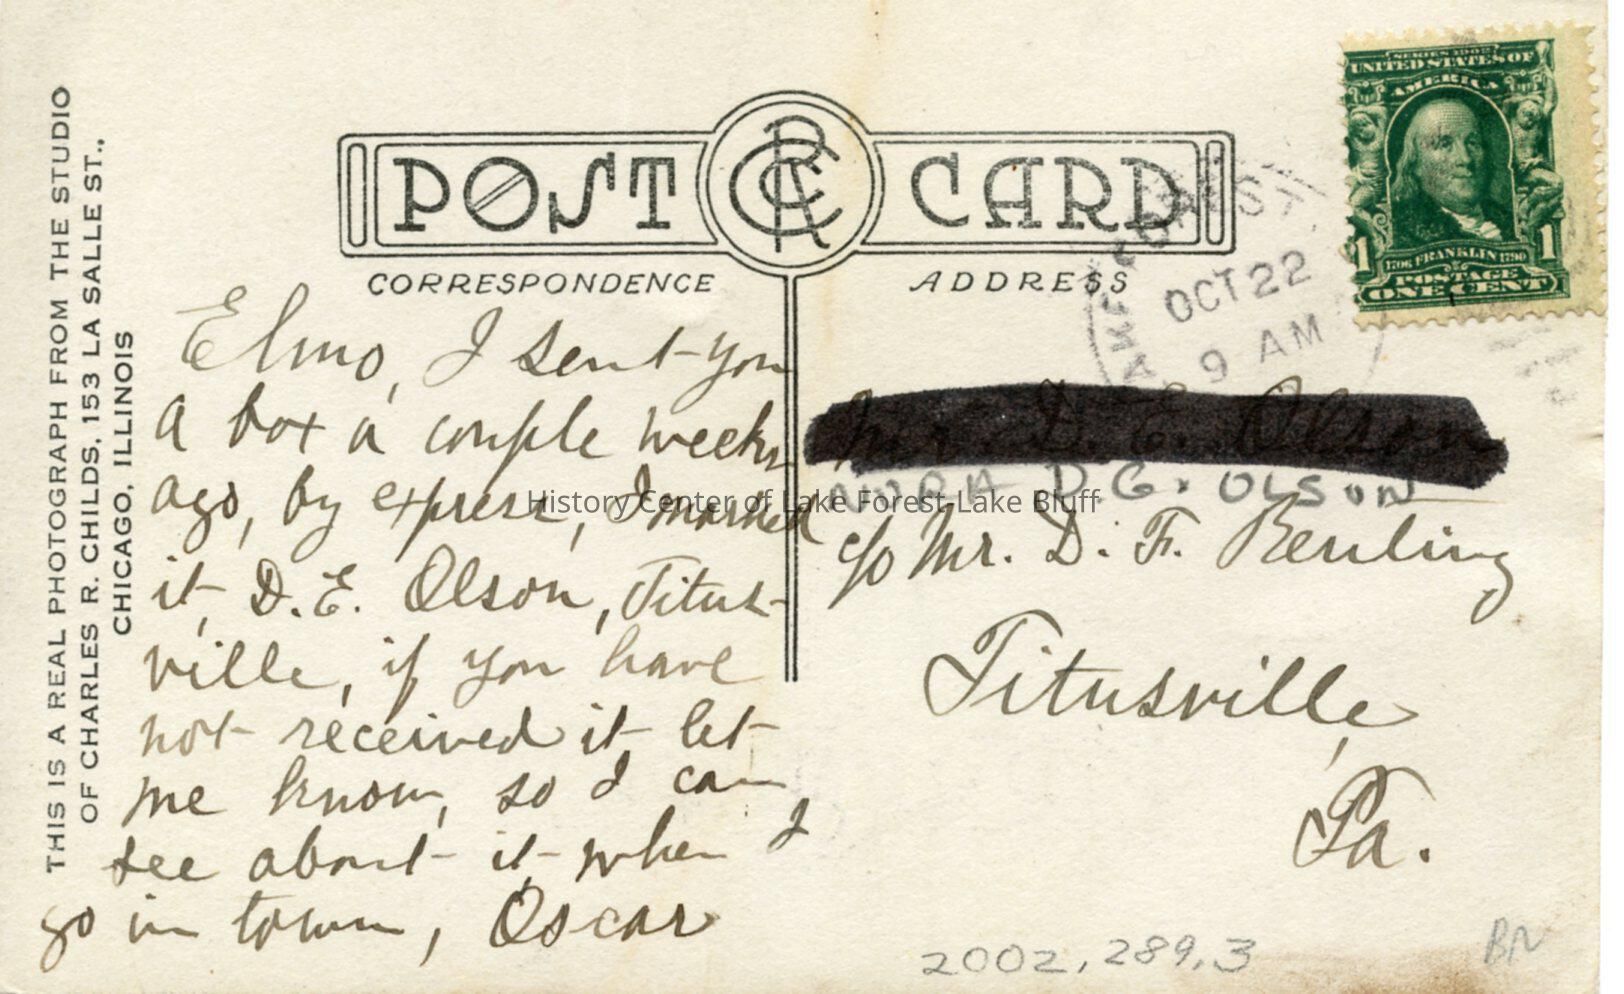 THIS IS A REAL PHOTOGRAPH FROM THE STUDIO
OF CHARLES R. CHILDS, 153 LA SALLE ST.,
CHICAGO, ILLINOIS
POST CARD
CRC
CORRESPONDENCE
ADDRESS
SERIES 1902
UNITED STATES OF
AMERICA
1706 FRANKLIN 1790
1 POSTAGE 1
ONE CENT
LAKE FOREST
OCT 22
9 AM
Elmo, I sent you
a box a couple weeks
ago, by express, I marked
it, D. E. Olson, Titus-
ville, if you have
not received it let
me know, so I can
see about it when I
go in town, Oscar
Mr. D. E. Olson
D. G. OLSON
c/o Mr. D. F. Benting
Titusville,
Pa.
History Center of Lake Forest-Lake Bluff
2002.289.3
BN